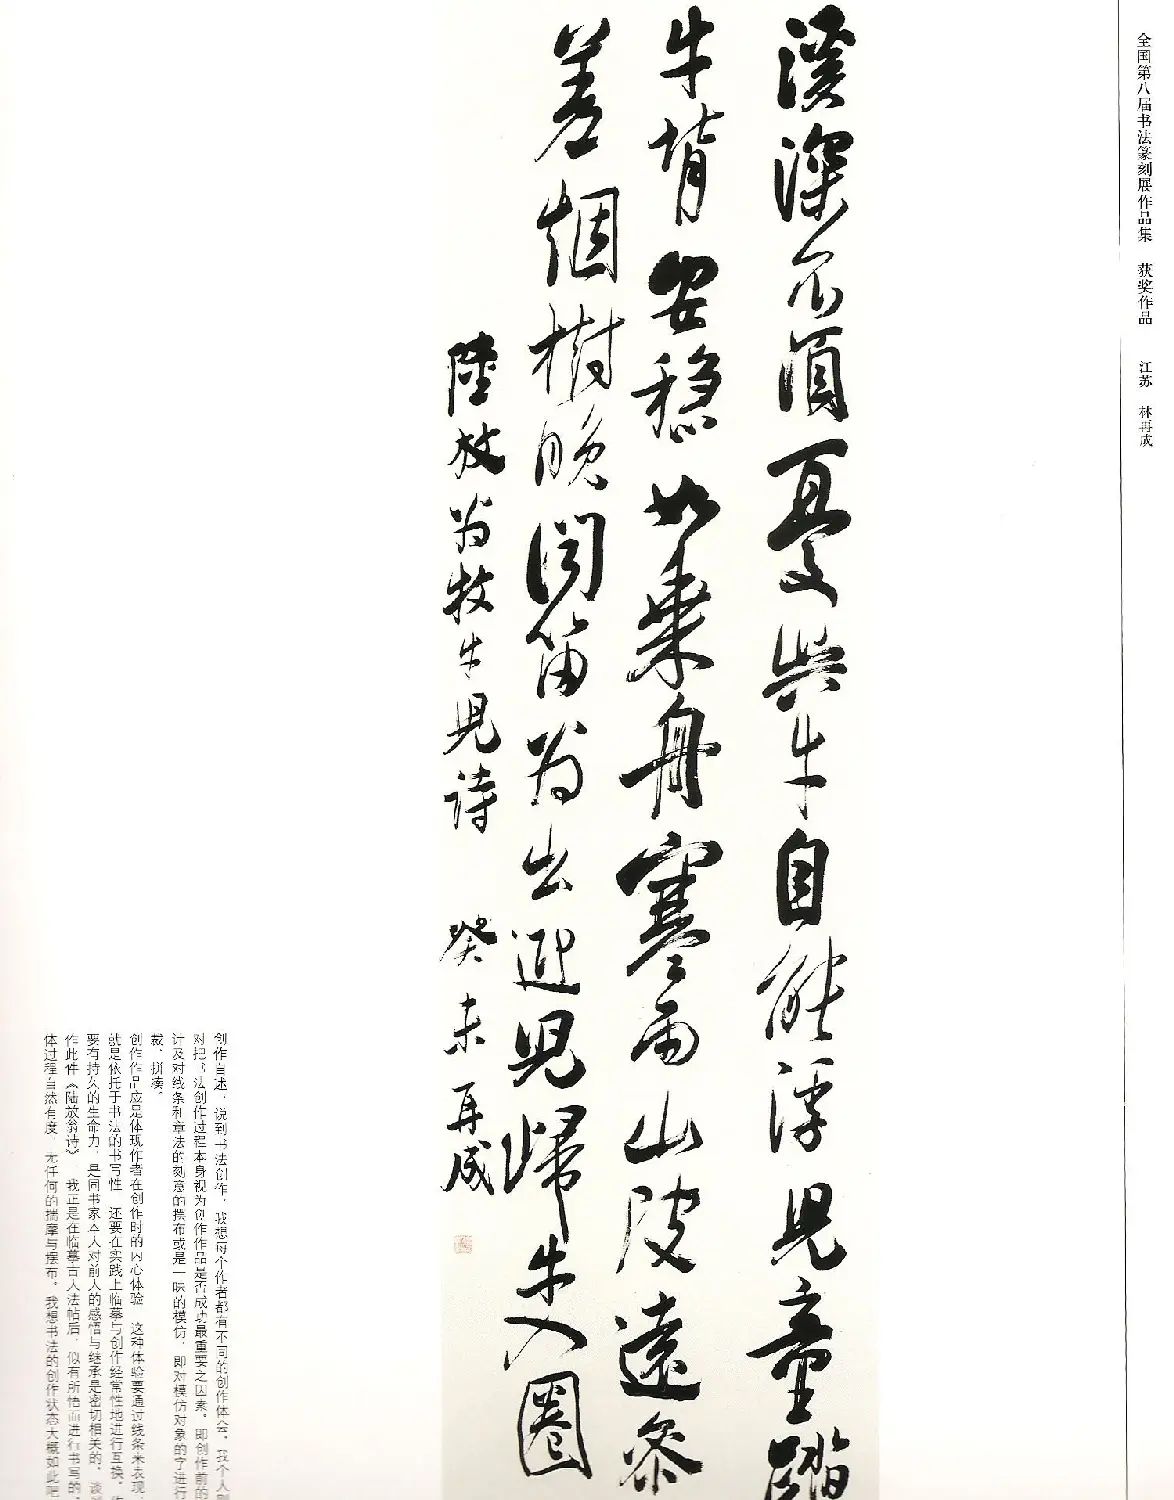 全国第八届书法篆刻展作品集 获奖作品 江苏 林再成
溪深不須憂吳牛自能浮兒童踏
牛背安穩如乘舟寒雨山陂遠參
差烟樹晚聞笛翁出迎兒歸牛入圈
陸放翁牧牛兒詩 癸未 再成
创作自述：说到书法创作，我想每个作者都有不同的创作体会。我个人则
对把书法创作过程本身视为创作作品是否成功最重要之因素。即创作前的
计及对线条和章法的刻意的摆布或是一味的模仿，即对模仿对象的字进行
裁、拼凑。
创作作品应是体现作者在创作时的内心体验，这种体验要通过线条来表现，
就是依托于书法的书写性，还要在实践上临摹与创作经常性地进行互换。
要有持久的生命力，是同书家本人对前人的感悟与继承是密切相关的。谈
作此件《陆放翁诗》，我正是在临摹古人法帖后，似有所悟而进行书写的，
体过程自然有度，无任何的揣摩与摆布。我想书法的创作状态大概如此吧